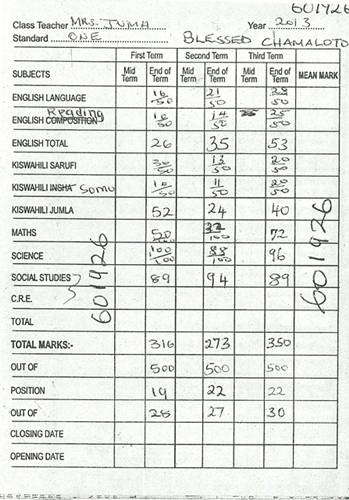 601926
Class Teacher MRS. JUMA Year 2013
Standard ONE BLESSED CHAMALOTO
First Term Second Term Third Term
SUBJECTS Mid Term End of Term Mid Term End of Term Mid Term End of Term MEAN MARK
ENGLISH LANGUAGE 16/50 21/50 28/50
Reading
ENGLISH COMPOSITION 10/50 14/50 25/50
ENGLISH TOTAL 26 35 53
KISWAHILI SARUFI 36/50 13/50 20/50
KISWAHILI INSHA Somo 16/50 11/50 20/50
KISWAHILI JUMLA 52 24 40
MATHS 32/100 72
SCIENCE 100/100 88/100 96
SOCIAL STUDIES 89 94 89
C.R.E.
TOTAL
TOTAL MARKS:- 316 273 350
OUT OF 500 500 500
POSITION 19 22 22
OUT OF 28 27 30
CLOSING DATE
OPENING DATE
601926
601926